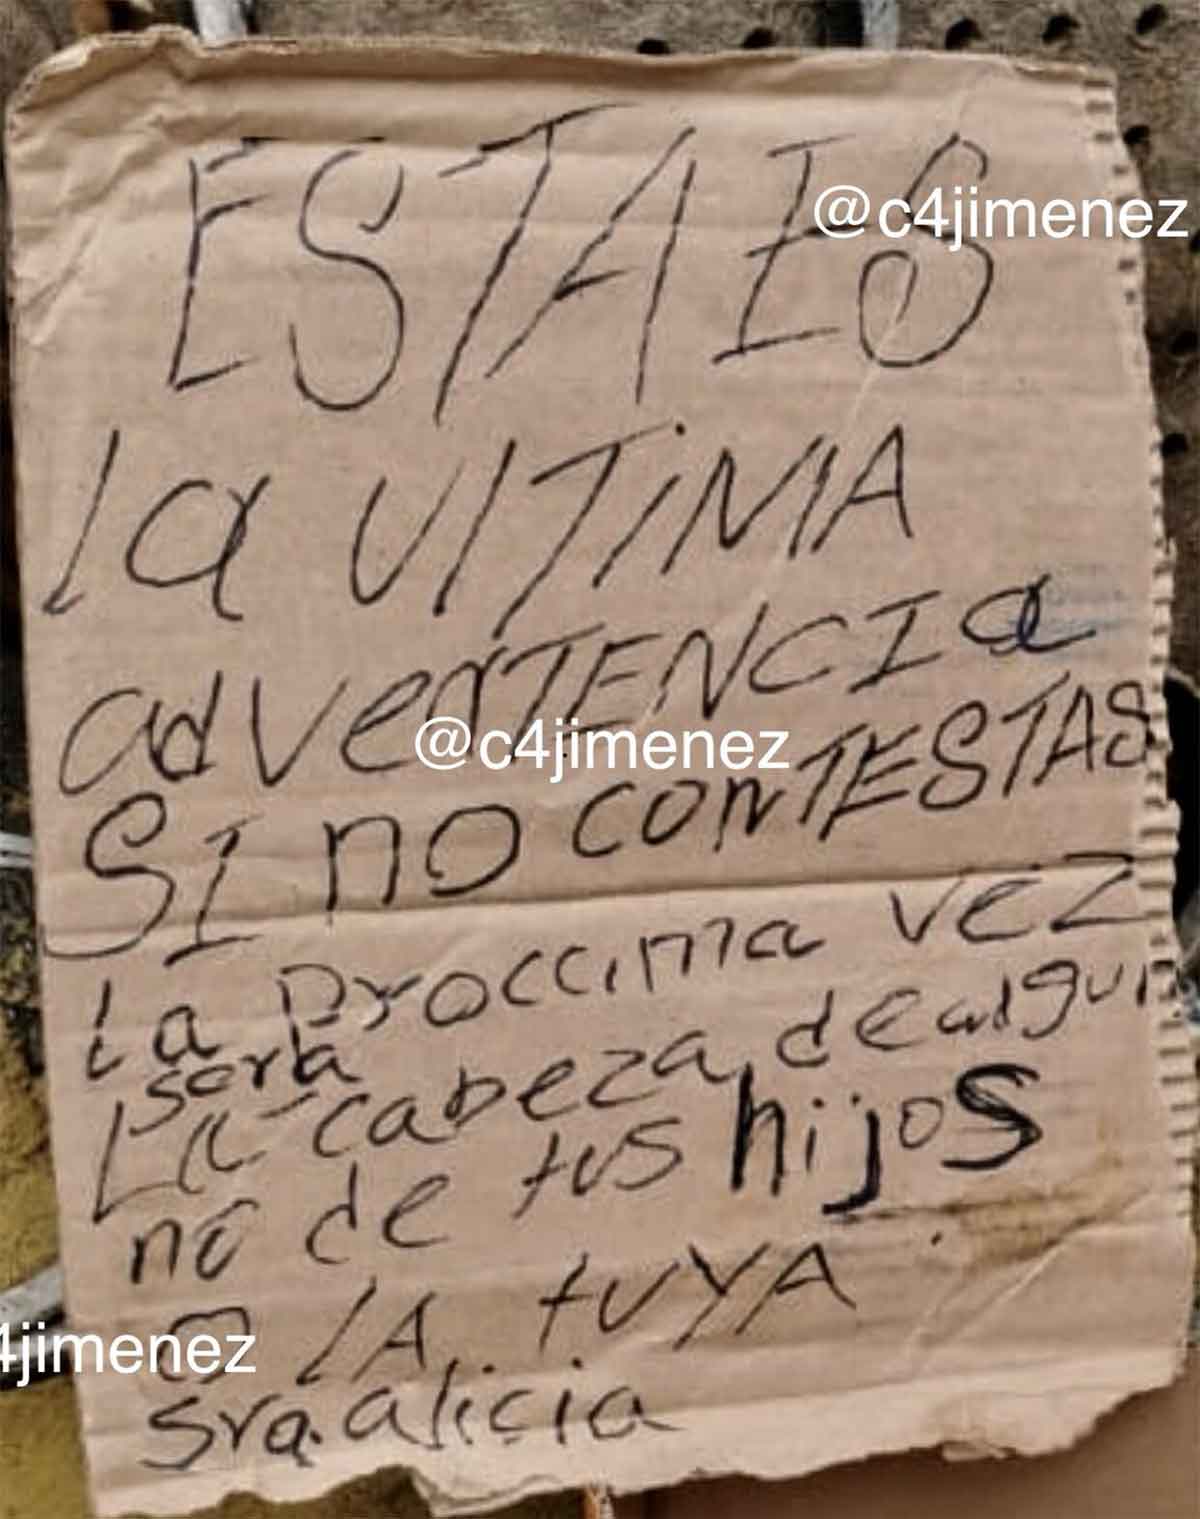 ESTA ES
@c4jimenez
la ULTiMA
advertENCIa
@c4jimenez
SI no conTESTAS
La Proccima vez
sera
La cabeza dealgui
no de tus hijos
o LA tuYA
4jimenez
Sra. alicia